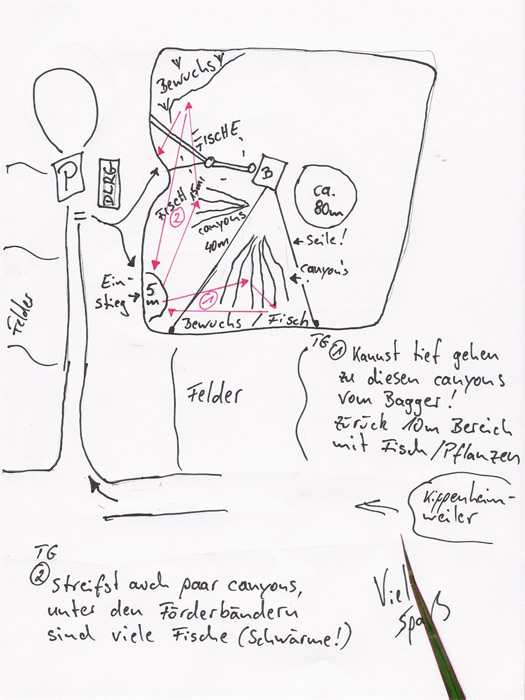 Bewuchs
P
DLRG
FISCHE
FISCH
B
ca.
80m
②
canyons
40m
← Seile!
canyon's
Ein-
stieg
5
m
①
Bewuchs / Fisch
Felder
Felder
TG
① Kannst tief gehen
zu diesen canyons
vom Bagger!
Zurück 10m Bereich
mit Fisch/Pflanzen
Kippenheim-
weiler
TG
② streifst auch paar canyons,
unter den Förderbändern
sind viele Fische (Schwärme!)
Viel
Spaß